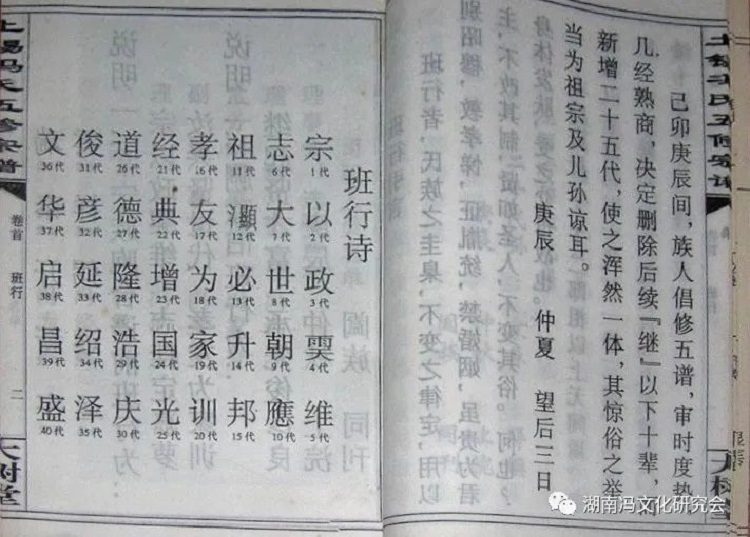 己卯庚辰间，族人倡修五谱，审时度势，
几经熟商，决定删除后续『继』以下十辈，而
新增二十五代，使之浑然一体，其惊俗之举，
当为祖宗及儿孙谅耳。
庚辰 仲夏 望后三日
班行诗
宗1代 以2代 政3代 4代 维5代
志6代 大7代 世8代 朝9代 應10代
祖11代 12代 必13代 升14代 邦15代
孝16代 友17代 为18代 家19代 训20代
经21代 典22代 增23代 国24代 光25代
道26代 德27代 隆28代 浩29代 庆30代
俊31代 彦32代 延33代 绍34代 泽35代
文36代 华37代 启38代 昌39代 盛40代
冯氏五修宗谱
卷首 班行
二
大树堂
湖南冯文化研究会